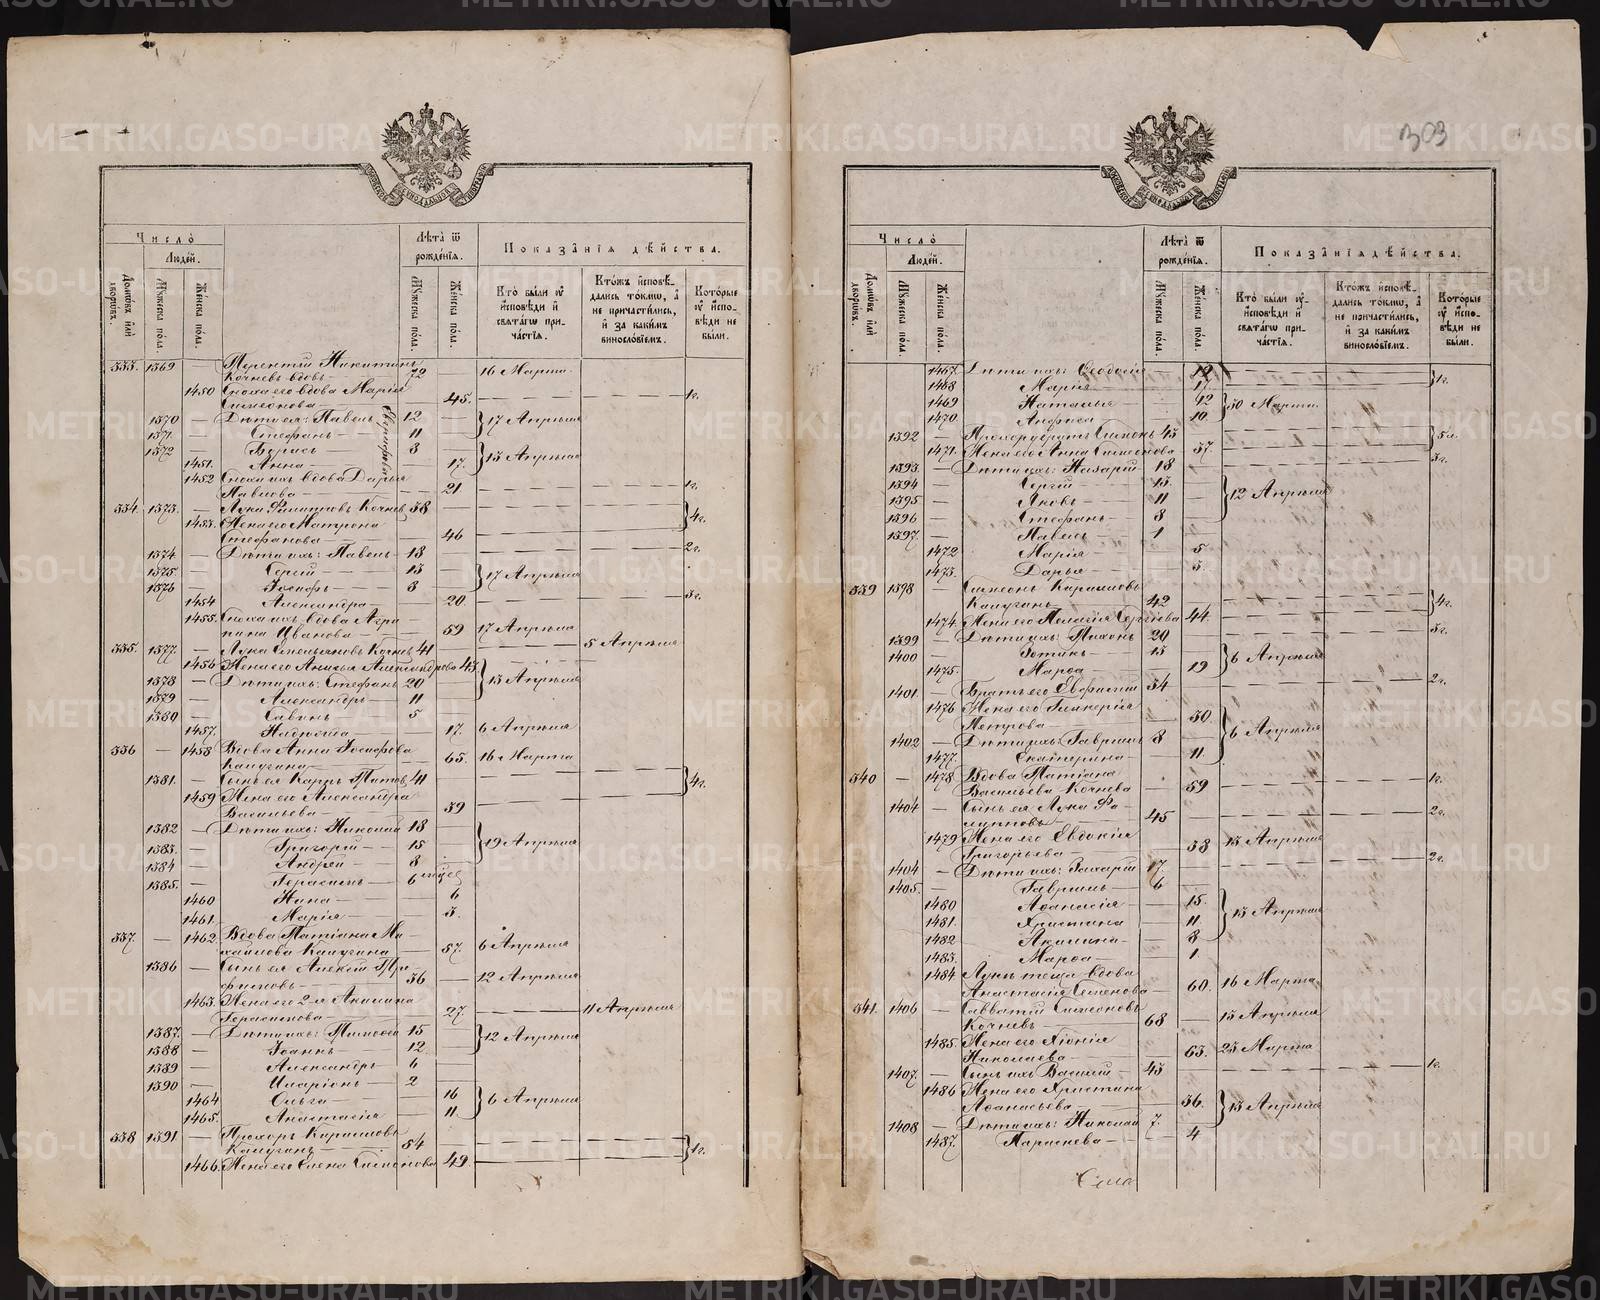 303
Число̀
Людей.
Домовъ или дворовъ.
Мужеска пола.
Женска пола.
Лѣта ѿ рожденія.
Мужеска пола.
Женска пола.
Показанія дѣйства.
Кто были у исповѣди и святаго причастія.
Ктожъ исповѣдались токмо, а не причастились, и за какимъ винословіемъ.
Которые у исповѣди не были.
333. 1369 — 
Кочневъ вдовъ — 72 — 16 Марта
1450 Сноха его вдова Марія
Симеонова — 45. — 1г.
1370 — Дѣти ея: Павелъ 12 } 17 Апрѣля
1371 — Стефанъ — 11
1372 — Борисъ — 8 } 13 Апрѣля
1451. Анна — 17.
1452 Сноха ихъ вдова Дарья
Павлова — 21 — 1г.
334. 1373. — Лука Филипповъ Кочневъ 38 } 4г.
1453. Жена его Матрона
Стефанова — 46
1374 — Дѣти ихъ: Павелъ 18 — 2г.
1375 — Сергій — 13 } 17 Апрѣля
1376 — Іосифъ — 8
1454 Александра — 20. — 3г.
1455. Сноха ихъ вдова Агри-
пина Иванова — 59 17 Апрѣля
335. 1377. — Лука Емельяновъ Кочневъ 41 — 5 Апрѣля
1456 Жена его Анисья Александрова 43. } 13 Апрѣля
1378 — Дѣти ихъ: Стефанъ 20
1379 — Александръ — 11
1380 — Саввинъ — 5
1457. Надежда — 17. 6 Апрѣля
336 — 1458 Вдова Анна Іосифова
Калугина — 65. 16 Марта
1381. — Сынъ ея Карпъ Титовъ 41 } 4г.
1459 Жена его Александра
Васильева — 39
1382 — Дѣти ихъ: Николай 18 } 19 Апрѣля
1383. — Григорій — 15
1384 — Андрей — 8
1385. — Герасимъ — 6
1460 Нина — 6
1461. Марія — 3.
337. — 1462. Вдова Татіана Ми-
хайлова Калугина — 57. 6 Апрѣля
1386 — Сынъ ея Алексѣй Три-
фоновъ — 36 — 12 Апрѣля
1463. Жена его 2-я Акилина
Герасимова — 27. — 11 Апрѣля
1387. — Дѣти ихъ: Тимофей 15 } 12 Апрѣля
1388 — Іоаннъ — 12
1389 — Александръ 6
1390 — Иларіонъ — 2
1464 Ольга — 16 } 6 Апрѣля
1465. Анастасія — 11
338 1391 — Прохоръ Карпиловъ
Калугинъ — 54 } 1г.
1466. Жена его Елена Симеонова 49.
Число̀
Людей.
Домовъ или дворовъ.
Мужеска пола.
Женска пола.
Лѣта ѿ рожденія.
Мужеска пола.
Женска пола.
Показанія дѣйства.
Кто были у исповѣди и святаго причастія.
Ктожъ исповѣдались токмо, а не причастились, и за какимъ винословіемъ.
Которые у исповѣди не были.
1467. Дѣти ихъ: Ѳеодосія 19 } 1г.
1468 Марія — 17.
1469 Наталья — 12 } 30 Марта
1470. Анфиса — 10
1392 — Прохору братъ Симеонъ 43 } 3г.
1471. Жена его Анна Симеонова 37.
1393. — Дѣти ихъ: Назарій 18 — 3г.
1394 — Сергій — 13. } 12 Апрѣля
1395 — Яковъ — 11
1396 — Стефанъ — 8
1397. — Павелъ — 1
1472 Марія — 5.
1473. Дарья — 3
339 1398 — Симеонъ Карпиловъ
Калугинъ — 42 } 4г.
1474. Жена его Пелагія Сергѣева 44.
1399 — Дѣти ихъ: Тихонъ 20 — 3г.
1400 — Фотинъ — 13 } 6 Апрѣля
1475. Марѳа — 19
1401. — Братъ его Евфимій 34 — 2г.
1476 Жена его Гликерія
Петрова — 30 } 6 Апрѣля
1402 — Дѣти ихъ: Гавріилъ 8
1477. Екатерина — 11
340 — 1478 Вдова Татіана
Васильева Кочнева — 59 — 1г.
1404 — Сынъ ея Лука Фи-
липповъ — 45 — 2г.
1479 Жена его Евдокія
Григорьева — 38 13 Апрѣля
1404 — Дѣти ихъ: Захарій 17. — 2г.
1405. — Гавріилъ — 6
1480 Аѳанасія — 15. } 13 Апрѣля
1481. Христина — 11
1482 Акилина — 8
1483. Марѳа — 1
1484 Лукѣ теща вдова
Анастасія Семенова — 60. 16 Марта
341. 1406 — Савватій Симеоновъ
Кочневъ — 68 — 13 Апрѣля
1485. Жена его Хіонія
Николаева — 63. 23 Марта
1407. — Сынъ ихъ Василій — 43 — 1г.
1486 Жена его Христина
Аѳанасьева — 36. } 13 Апрѣля
1408 — Дѣти ихъ: Николай 7.
1487. Параскева — 4